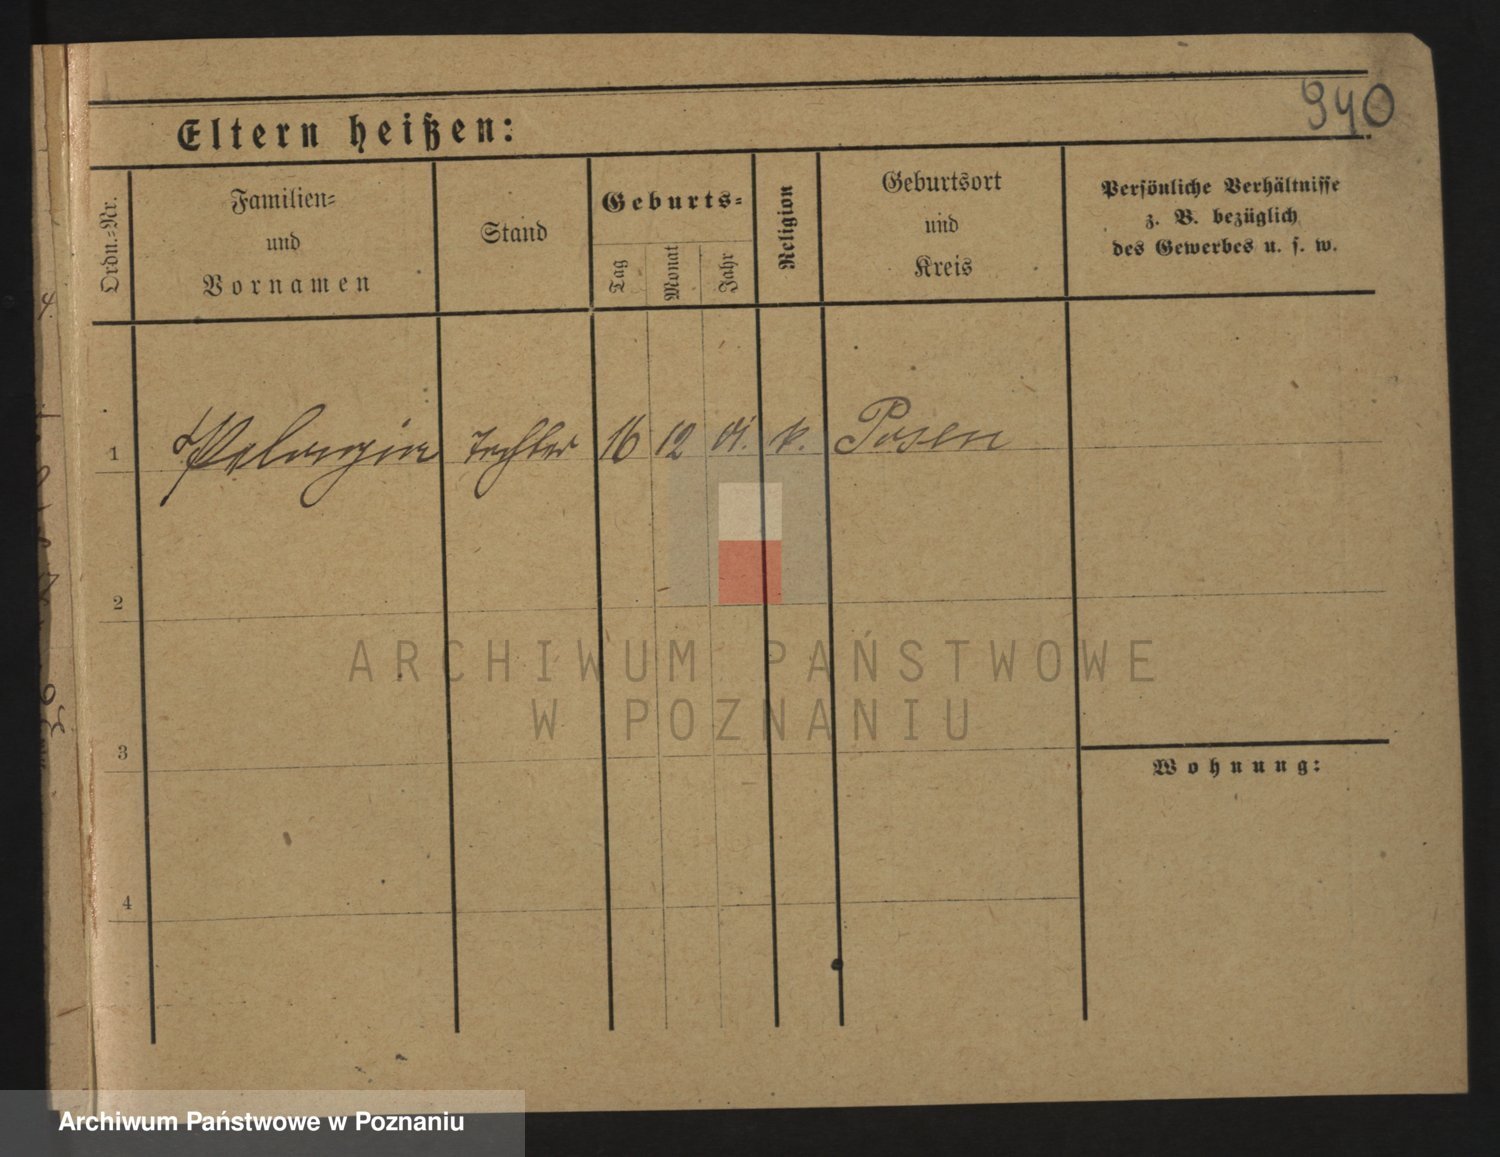 940
Eltern heißen:
Ordn.-Nr.
Familien-
und
Vornamen
Stand
Geburts-
Tag
Monat
Jahr
Religion
Geburtsort
und
Kreis
Persönliche Verhältnisse
z. B. bezüglich
des Gewerbes u. s. w.
1 Pelagia Tochter 16 12 01. k. Posen
2
ARCHIWUM PAŃSTWOWE
W POZNANIU
3
Wohnung:
4
Archiwum Państwowe w Poznaniu